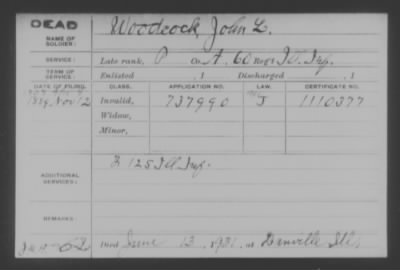 DEAD
NAME OF SOLDIER: Woodcock, John L.
SERVICE: Late rank, P Co. A, 60 Reg't Ill. Inf.
TERM OF SERVICE: Enlisted , 1 Discharged , 1
DATE OF FILING. CLASS. APPLICATION NO. LAW. CERTIFICATE NO.
1889, Nov 12 Invalid, 737990 J 1110377
Widow,
Minor,
ADDITIONAL SERVICES: F 125 Ill Inf.
REMARKS:
Died June 13, 1931, at Danville Ill.